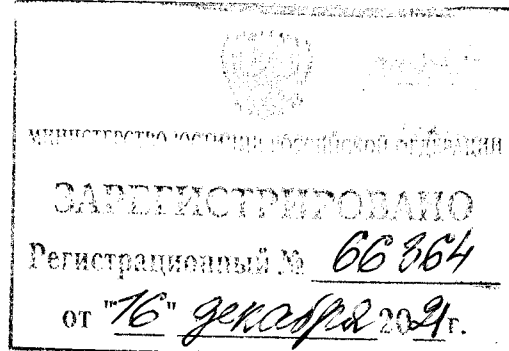 МИНИСТЕРСТВО ЮСТИЦИИ РОССИЙСКОЙ ФЕДЕРАЦИИ
ЗАРЕГИСТРИРОВАНО
Регистрационный № 66364
от "16" декабря 2021г.